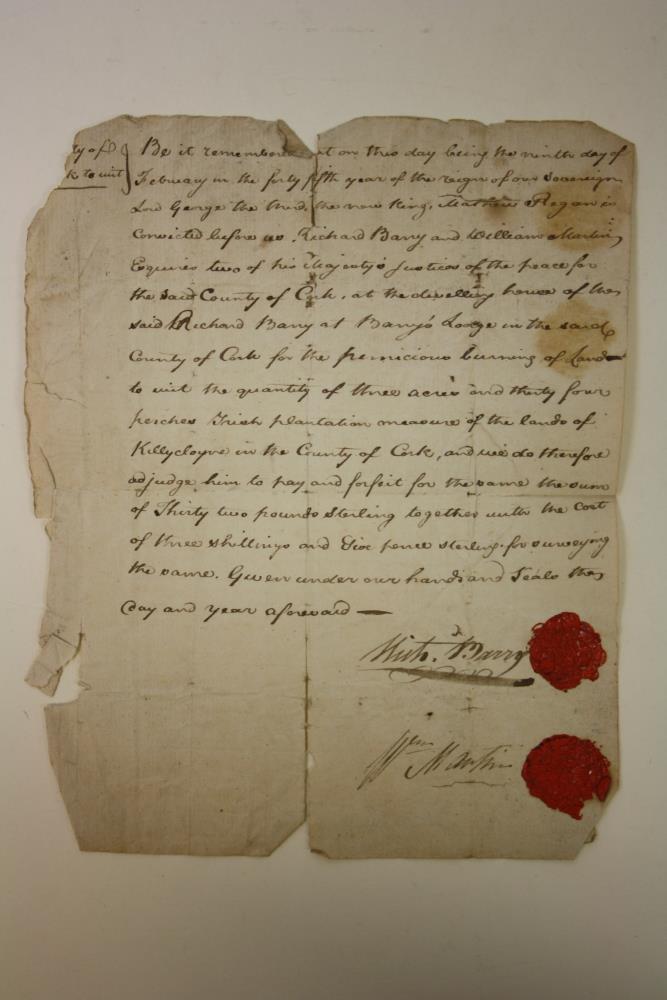 ty of } Be it remembered that on this day being the ninth day of
k to wit February in the forty fifth year of the reign of our Sovereign
Lord George the third, the now King, Mathew Regan is
Convicted before us, Richard Barry and William Martin
Esquires two of his Majesty's Justices of the peace for
the said County of Cork, at the dwelling house of the
said Richard Barry at Barry's Lodge in the said
County of Cork for the pernicious burning of Land
to wit the quantity of three acres and thirty four
perches Irish plantation measure of the lands of
Killycloyne in the County of Cork, and we do therefore
adjudge him to pay and forfeit for the same the sum
of Thirty two pounds Sterling together with the cost
of three shillings and Six pence sterling for surveying
the same. Given under our hands and Seals the
day and year aforesaid —
Richd. Barry
Wm Martin